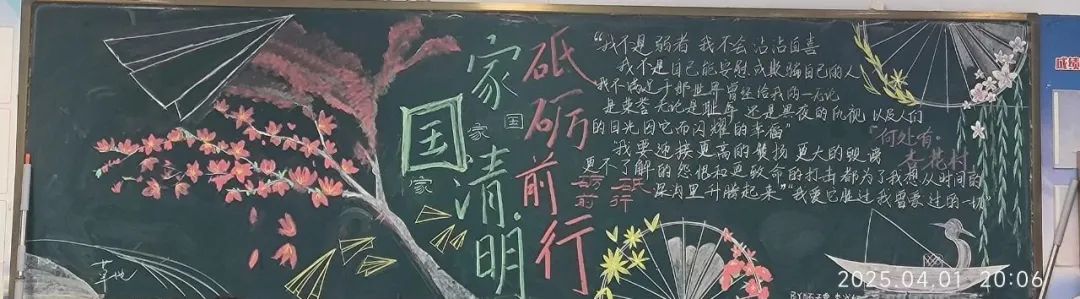 家国清明
砥砺前行
国
家
国
家
"我不是弱者 我不会沾沾自喜
我不是自己能安慰或欺骗自己的人
是荣誉 无论是耻辱 还是黑夜的仇视 以及人们
的目光因它而闪耀的幸福"
"我要迎接更高的赞扬 更大的毁谤
更不了解的怨恨和更致命的打击都为了我想从时间的
深沟里升腾起来""我爱它胜过我曾爱过的一切"
"何处有
杏花村
砥行
砺前
2025.04.01 20:06
成绩